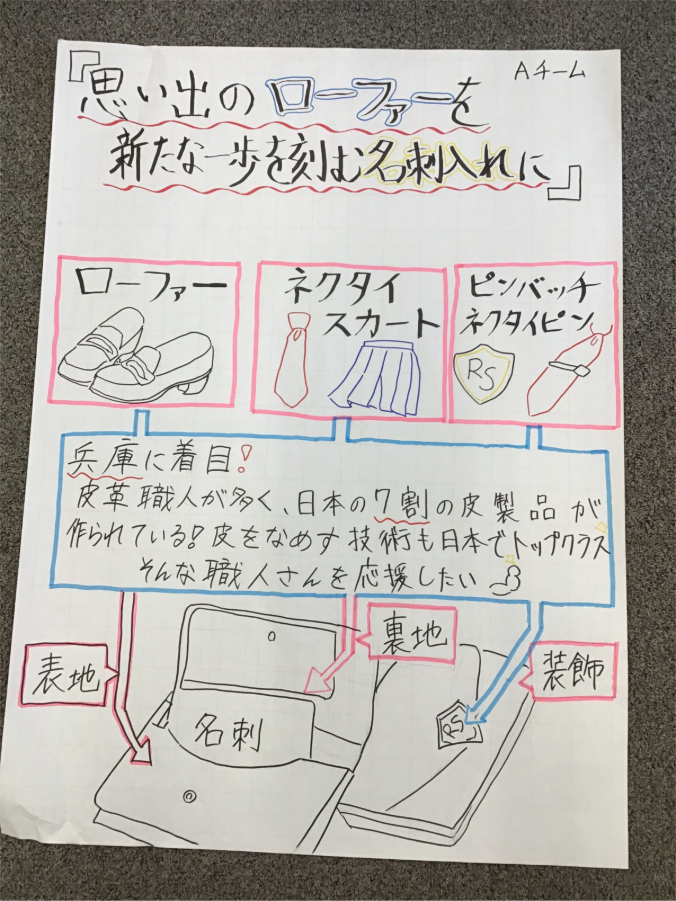 Aチーム
『思い出のローファーを
新たな一歩を刻む名刺入れに』
ローファー
ネクタイ
スカート
ピンバッチ
ネクタイピン
RS
兵庫に着目!
皮革職人が多く、日本の7割の皮製品が
作られている!皮をなめす技術も日本でトップクラス
そんな職人さんを応援したい
表地
裏地
装飾
名刺
RS